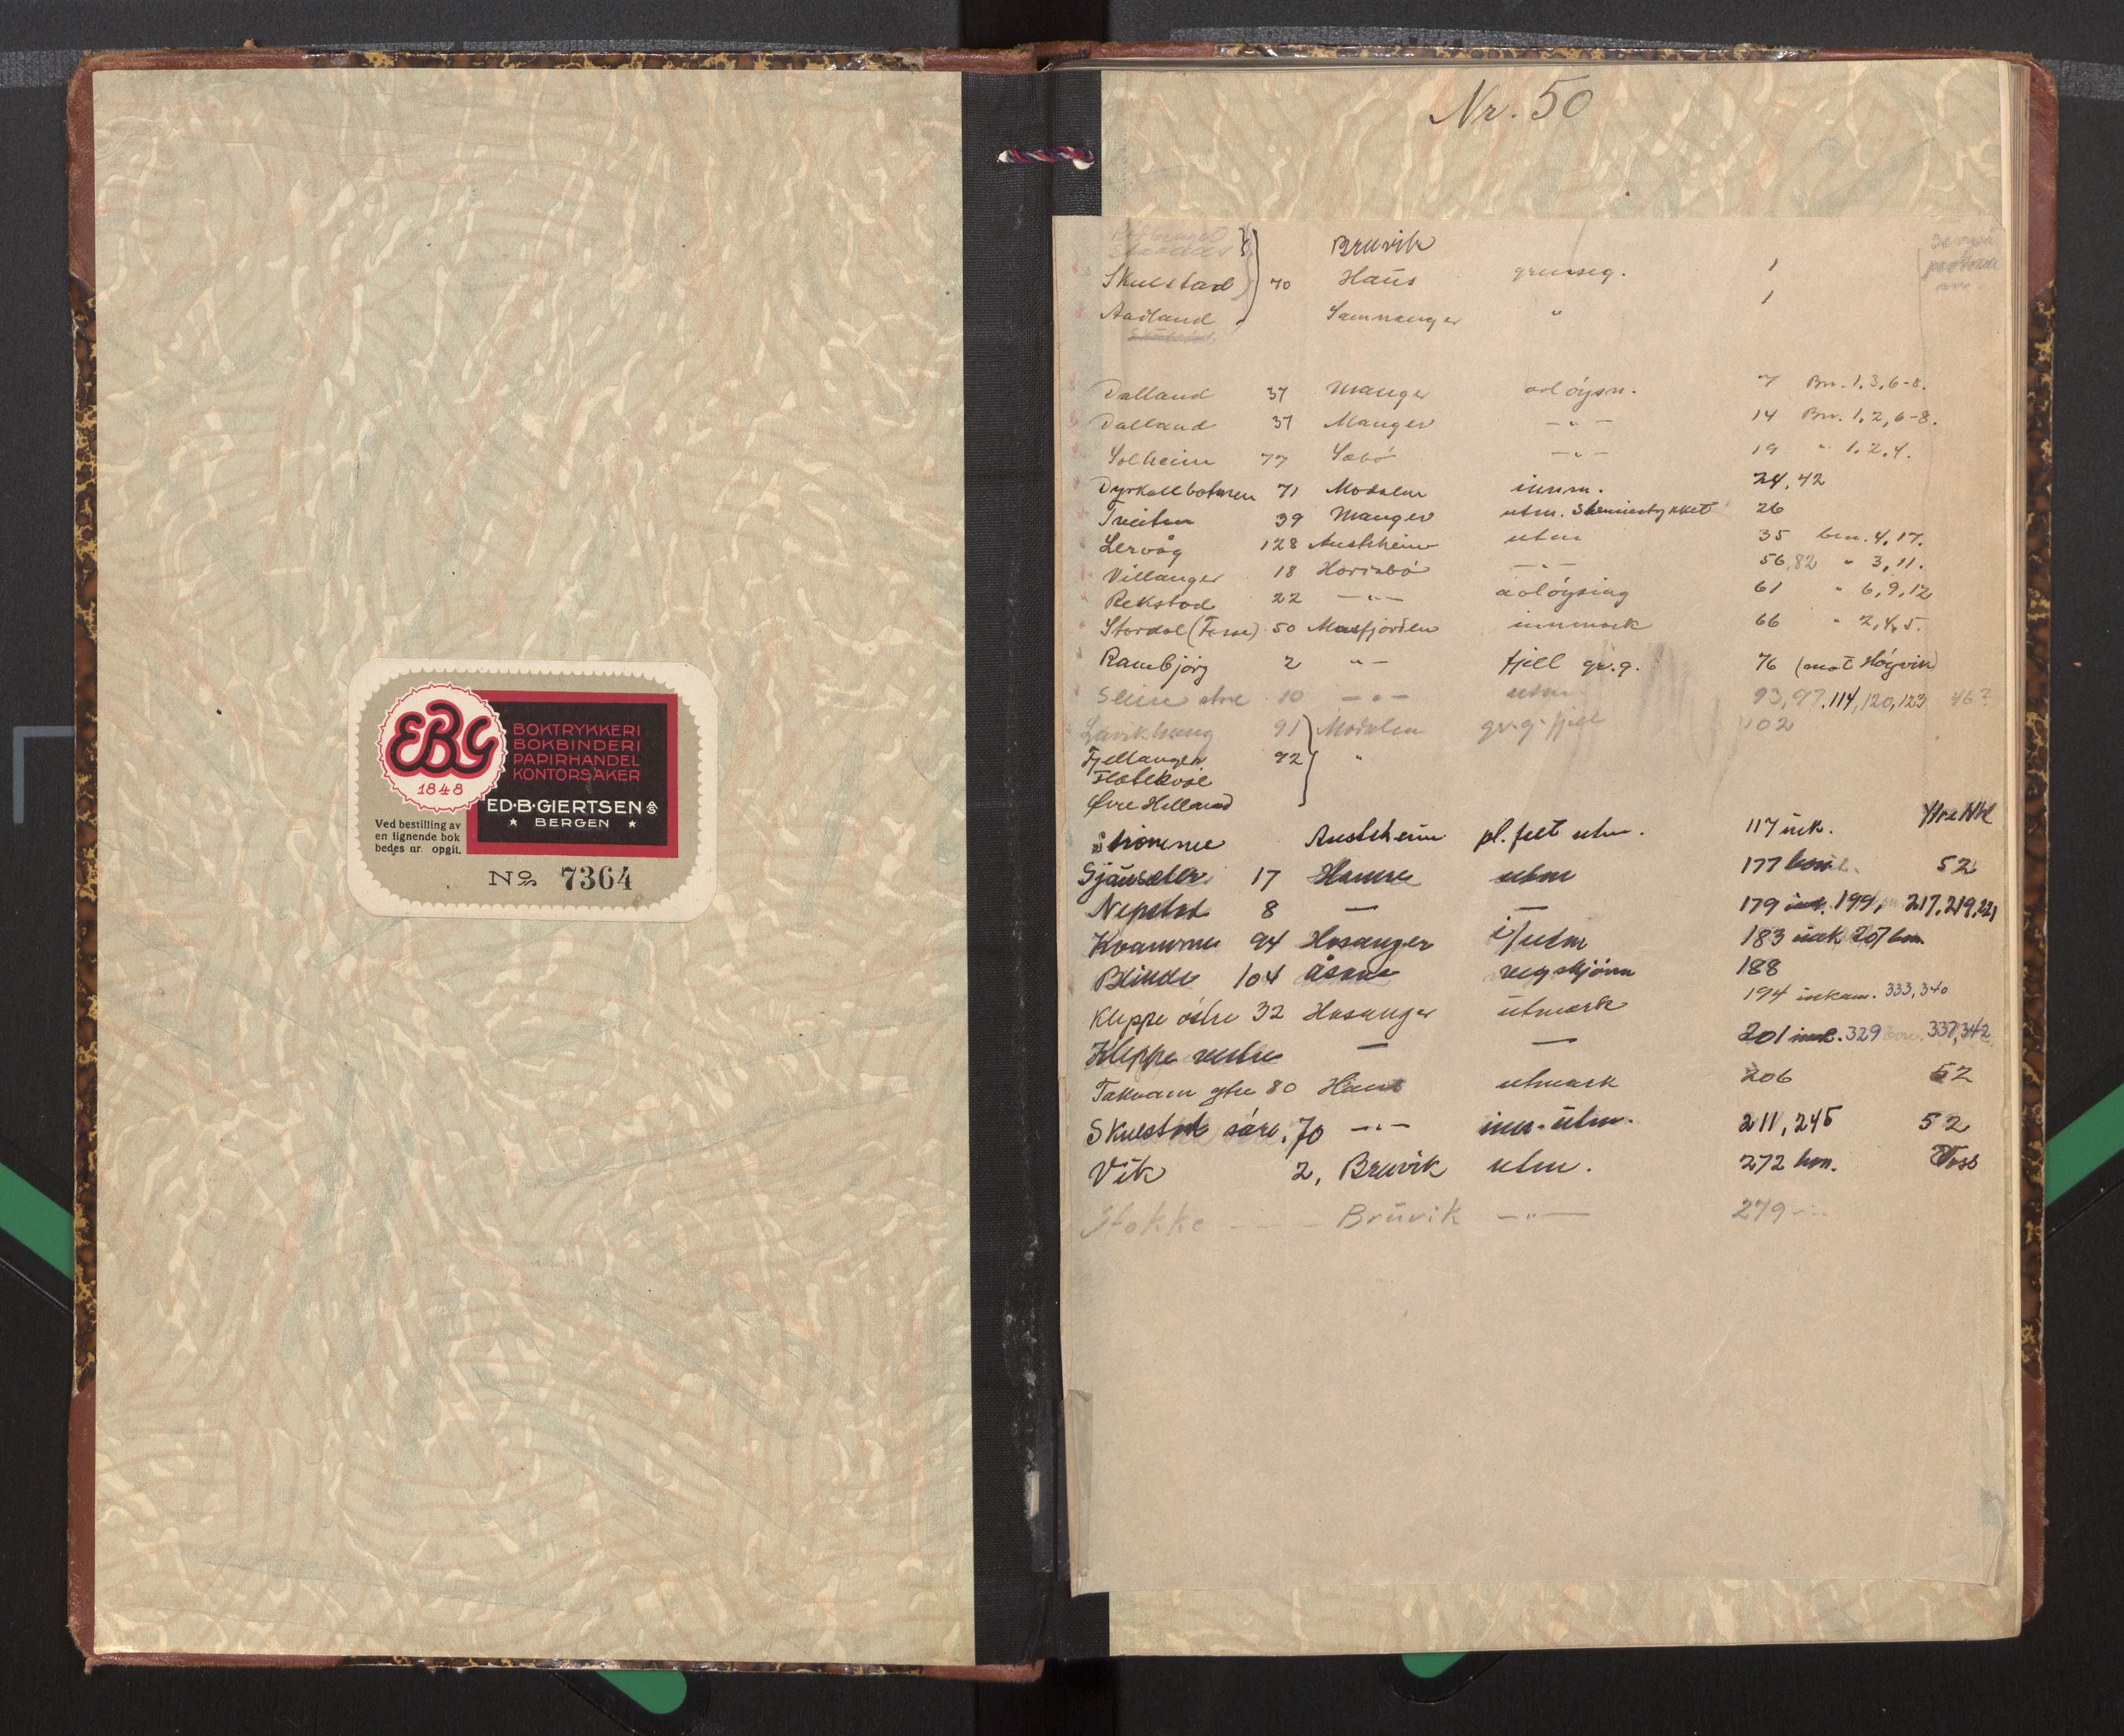 EBG
1848
BOKTRYKKERI
BOKBINDERI
PAPIRHANDEL
KONTORSAKER
ED.B.GIERTSEN A/S
★ BERGEN ★
Ved bestilling av
en lignende bok
bedes nr. opgit.
No 7364
Nr. 50
Bruvik
Skulstad 70 Haus grenseg. 1
Aadland Samnanger " 1
Dalland 37 Manger avløysn. 7 Bnr. 1, 3, 6-8.
Dalland 37 Manger -"- 14 Bnr. 1, 2, 6-8.
Solheim 77 Sæbö -"- 19 " 1, 2, 4.
Dyrkollbotnen 71 Modalen innm. 24, 42
Tveiten 39 Manger utm. 26
Lervåg 128 Austrheim utm 35 bnr. 4, 17.
Villanger 18 Hordabö -"- 56, 82 " 3, 11.
Rekstad 22 -"- avløysing 61 " 6, 9, 12
Stordal (Forse) 50 Masfjorden innmark 66 " 2, 4, 5.
Rambjörg 2 "- fjell gr.g. 76 (mot Høgvik)
Seim store 10 -"- utm. 93, 97, 114, 120, 123 46?
Lavikhaug 91 Modalen gr.g. fjell 102
Fjellanger 92 "
Flatekval
Øvre Helland
Austrheim pl. felt utm. 117 ink. Ytre NHl
Gjäusæter 17 Hamre utm 177 52
Nepstad 8 — — 179 199, 217, 219, 221
Kvamme 94 Hosanger i/utm 183 ink 207 bm
Blinde 104 Åsane vegskjönn 188
Kleppe östre 32 Hosanger utmark 194 inkam. 333, 340
Kleppe vestre — — 201 ink. 329 337, 342
Takvam ytre 80 Haus utmark 206 52
Skulstad 70 -"- inn-utm. 211, 245 52
Vik 2, Bruvik utm. 272 bm. Voss
Stokke Bruvik -"- 279